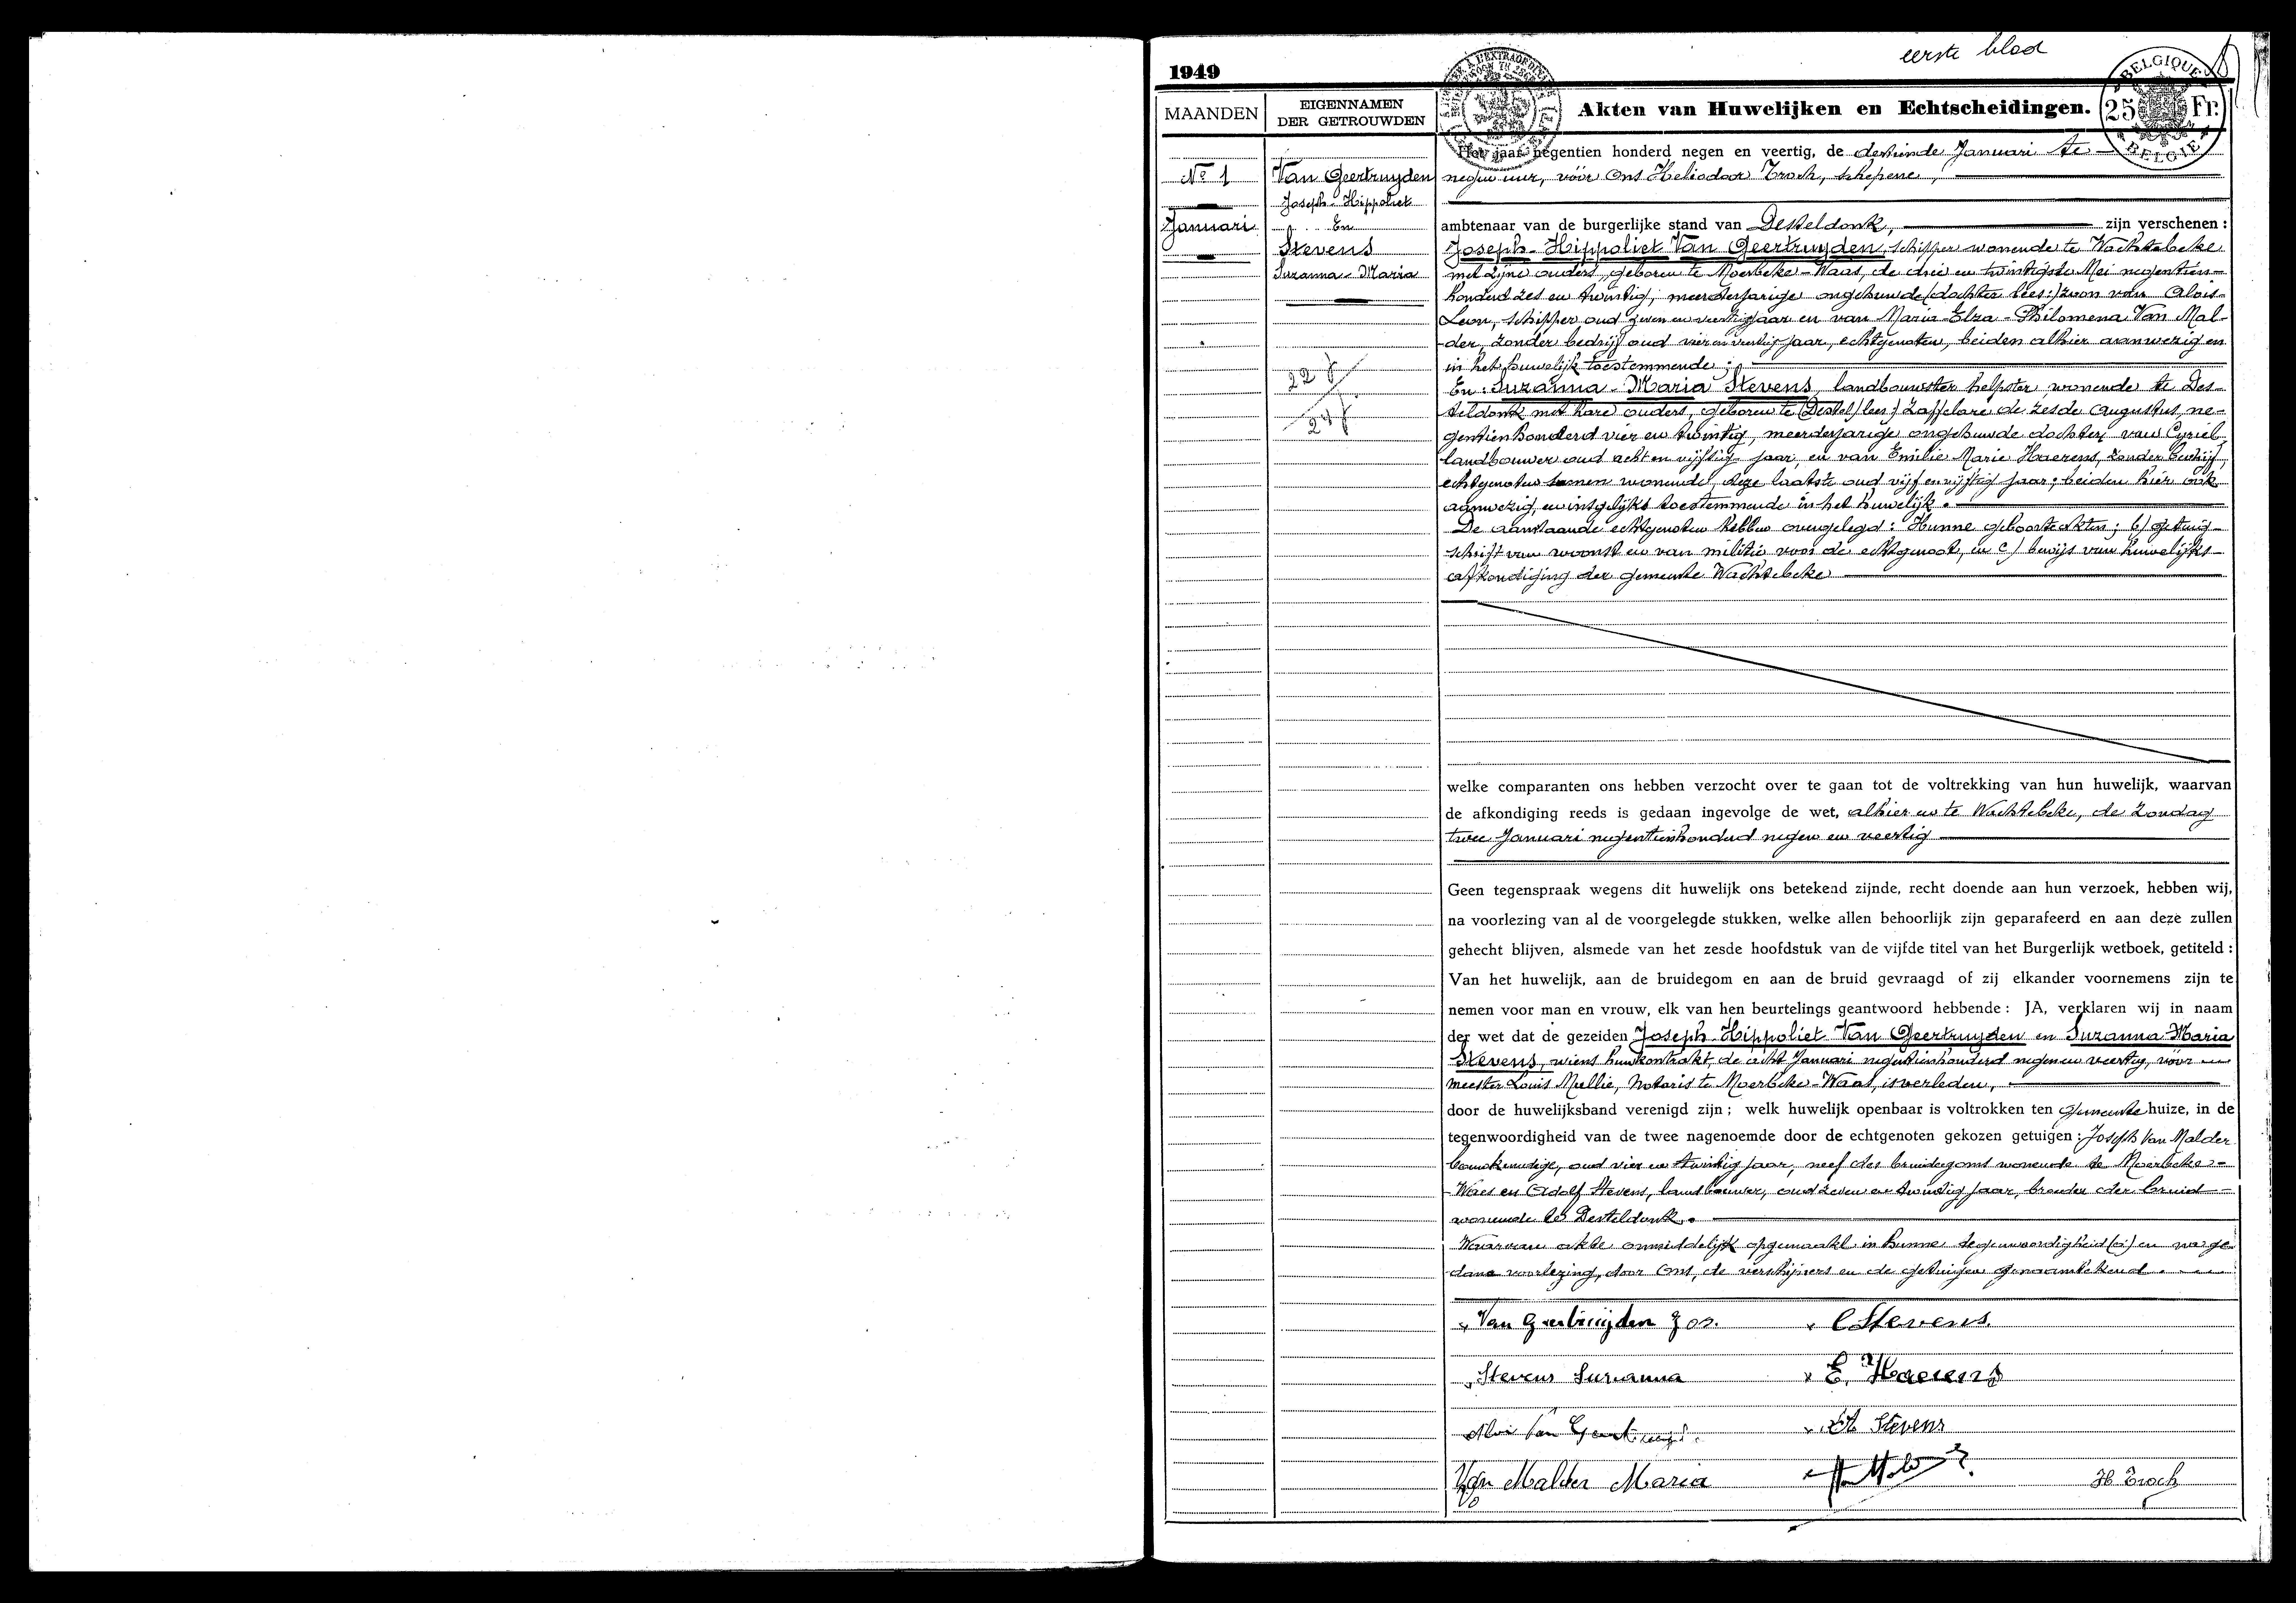 eerste blad
1949
MAANDEN
EIGENNAMEN
DER GETROUWDEN
Akten van Huwelijken en Echtscheidingen.
BELGIQUE
25 Fr.
BELGIE
Nº 1
Januari
Van Geertruyden
Joseph-Hippoliet
En
Stevens
Suzanna-Maria
22 j
24 j.
Het jaar negentien honderd negen en veertig, de dertiende Januari te
negen uur, vóór Ons Heliodoor Troch, schepene,
ambtenaar van de burgerlijke stand van Desteldonk, zijn verschenen :
Joseph-Hippoliet Van Geertruyden, schipper wonende te Wachtebeke
met zijne ouders, geboren te Moerbeke-Waas, de drie en twintigste Mei negentien-
honderd zes en twintig, meerderjarige ongehuwde (dochter lees:) zoon van Alois-
Leon, schipper oud zeven en veertig jaar en van Maria-Elza-Philomena Van Mal-
der, zonder bedrijf oud vier en veertig jaar, echtgenoten, beiden alhier aanwezig en
in het huwelijk toestemmende ;
En : Suzanna-Maria Stevens, landbouwster helpster, wonende te Des-
teldonk met hare ouders, geboren te (Destel/lees:) Zaffelare de zesde Augustus ne-
gentienhonderd vier en twintig, meerderjarige ongehuwde dochter van Cyriel
landbouwer oud acht en vijftig jaar, en van Emilie Marie Haerens, zonder bedrijf,
echtgenoten samen wonende, deze laatste oud vijf en vijftig jaar ; beiden hier ook
aanwezig, en insgelijks toestemmende in het huwelijk.
De aanstaande echtgenoten hebben overgelegd : Hunne geboorteakten ; b) getuig-
schrift van woonst en van militie voor de echtgenoot, en c) bewijs van huwelijks-
afkondiging der gemeente Wachtebeke
welke comparanten ons hebben verzocht over te gaan tot de voltrekking van hun huwelijk, waarvan
de afkondiging reeds is gedaan ingevolge de wet, alhier en te Wachtebeke, de Zondag
twee Januari negentienhonderd negen en veertig
Geen tegenspraak wegens dit huwelijk ons betekend zijnde, recht doende aan hun verzoek, hebben wij,
na voorlezing van al de voorgelegde stukken, welke allen behoorlijk zijn geparafeerd en aan deze zullen
gehecht blijven, alsmede van het zesde hoofdstuk van de vijfde titel van het Burgerlijk wetboek, getiteld :
Van het huwelijk, aan de bruidegom en aan de bruid gevraagd of zij elkander voornemens zijn te
nemen voor man en vrouw, elk van hen beurtelings geantwoord hebbende : JA, verklaren wij in naam
der wet dat de gezeiden Joseph-Hippoliet Van Geertruyden en Suzanna-Maria
Stevens, wiens huwkontrakt, de acht Januari negentienhonderd negen en veertig, vóór
meester Louis Mellie, Notaris te Moerbeke-Waas, is verleden,
door de huwelijksband verenigd zijn ; welk huwelijk openbaar is voltrokken ten gemeente huize, in de
tegenwoordigheid van de twee nagenoemde door de echtgenoten gekozen getuigen : Joseph Van Malder
bouwkundige, oud vier en twintig jaar, neef des bruidegoms wonende te Moerbeke-
Waes en Adolf Stevens, landbouwer, oud zeven en twintig jaar, broeder der bruid
wonende te Desteldonk.
Waarvan akte onmiddelijk opgemaakt in hunne tegenwoordigheid en na ge-
dane voorlezing, door Ons, de verschijners en de getuigen genaamtekend.
Van Geertruijden Jos.
C Stevens
Stevens Suzanna
E. Haerens
Aloïs Van
Stevens
Van Malder Maria
H Troch